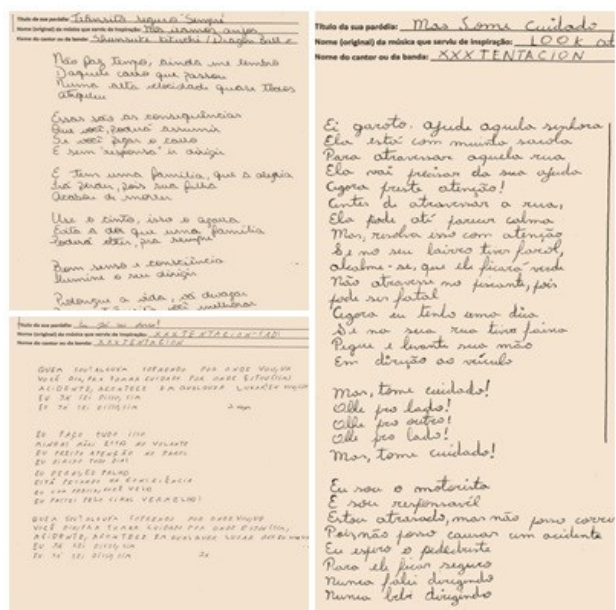 Título da sua paródia: Trânsito seguro "Sempri"
Nome (original) da música que serviu de inspiração: Nós somos anjos
Nome do cantor ou da banda: Shunsuke Kikuchi / Dragon Ball Z
Não faz tempo, ainda me lembro
Daquele carro que passou
Numa alta velocidade quase todos
atingiu
Essas são as consequências
Que você poderá assumir
Se você pegar o carro
E sem "responsa" ir dirigir
E tem uma família, que a alegria
Irá perder, pois sua filha
Acabou de morrer
Use o cinto, isso é agora
Evita a dor que uma família
Poderá obter, pra sempre
Bom senso e consciência
Ilumine o seu dirigir
a vida, só
melhorar
Título da sua paródia: Eu já me
Nome (original) da música que serviu de inspiração: XXXTENTACION - SAD!
Nome do cantor ou da banda: XXXTENTACION
QUEM SOU? ALGUÉM SOFRENDO POR ONDE VOU, VOU
VOCÊ DIRIA PRA TOMAR CUIDADO POR ONDE
ACIDENTE, ACONTECE EM QUALQUER LUGAR
EU JÁ SEI DISSO, SIM
EU JÁ SEI DISSO, SIM 2 vezes
EU FAÇO TUDO ISSO
MINHAS MÃOS ESTÃO NO VOLANTE
EU PRESTO ATENÇÃO NO FAROL
EU DIRIJO TODO DIAS
EU DEMASIO FALHO
ESTÁ PESANDO NA CONSCIÊNCIA
EU COM PRESSA, VOCÊ VELO
EU PASSEI PELO SINAL VERMELHO!
QUEM SOU? ALGUÉM SOFRENDO POR ONDE VOU, VOU
VOCÊ DIRIA PRA TOMAR CUIDADO POR ONDE
ACIDENTE, ACONTECE EM QUALQUER LUGAR
EU JÁ SEI DISSO, SIM
EU JÁ SEI DISSO, SIM 2x
Título da sua paródia: Mas Tome Cuidado
Nome (original) da música que serviu de inspiração: LOOK At
Nome do cantor ou da banda: XXXTENTACION
Ei garoto, ajude aquela senhora
Ela está com muinda sacola
Para atravessar aquela rua
Ela vai precisar da sua ajuda
Agora preste atenção!
Antes de atravessar a rua,
Ela pode até parecer calma
Mas, resolva isso com atenção
Se no seu bairro tiver farol,
acalme-se, que ele ficará verde
Não atravesse no piscante, pois
pode ser fatal
Agora eu tenho uma dica
Se na sua rua tiver faixa
Pegue e levante sua mão
Em direção ao veículo
Mas, tome cuidado!
Olhe pro lado!
Olhe pro outro!
Olhe pro lado!
Mas, tome cuidado!
Eu sou o motorista
E sou responsavél
Estou atrasado, mas não posso correr
Pois não posso causar um acidente
Eu espero o pedestre
Para ele ficar seguro
Nunca falei dirigindo
Nunca bebi dirigindo